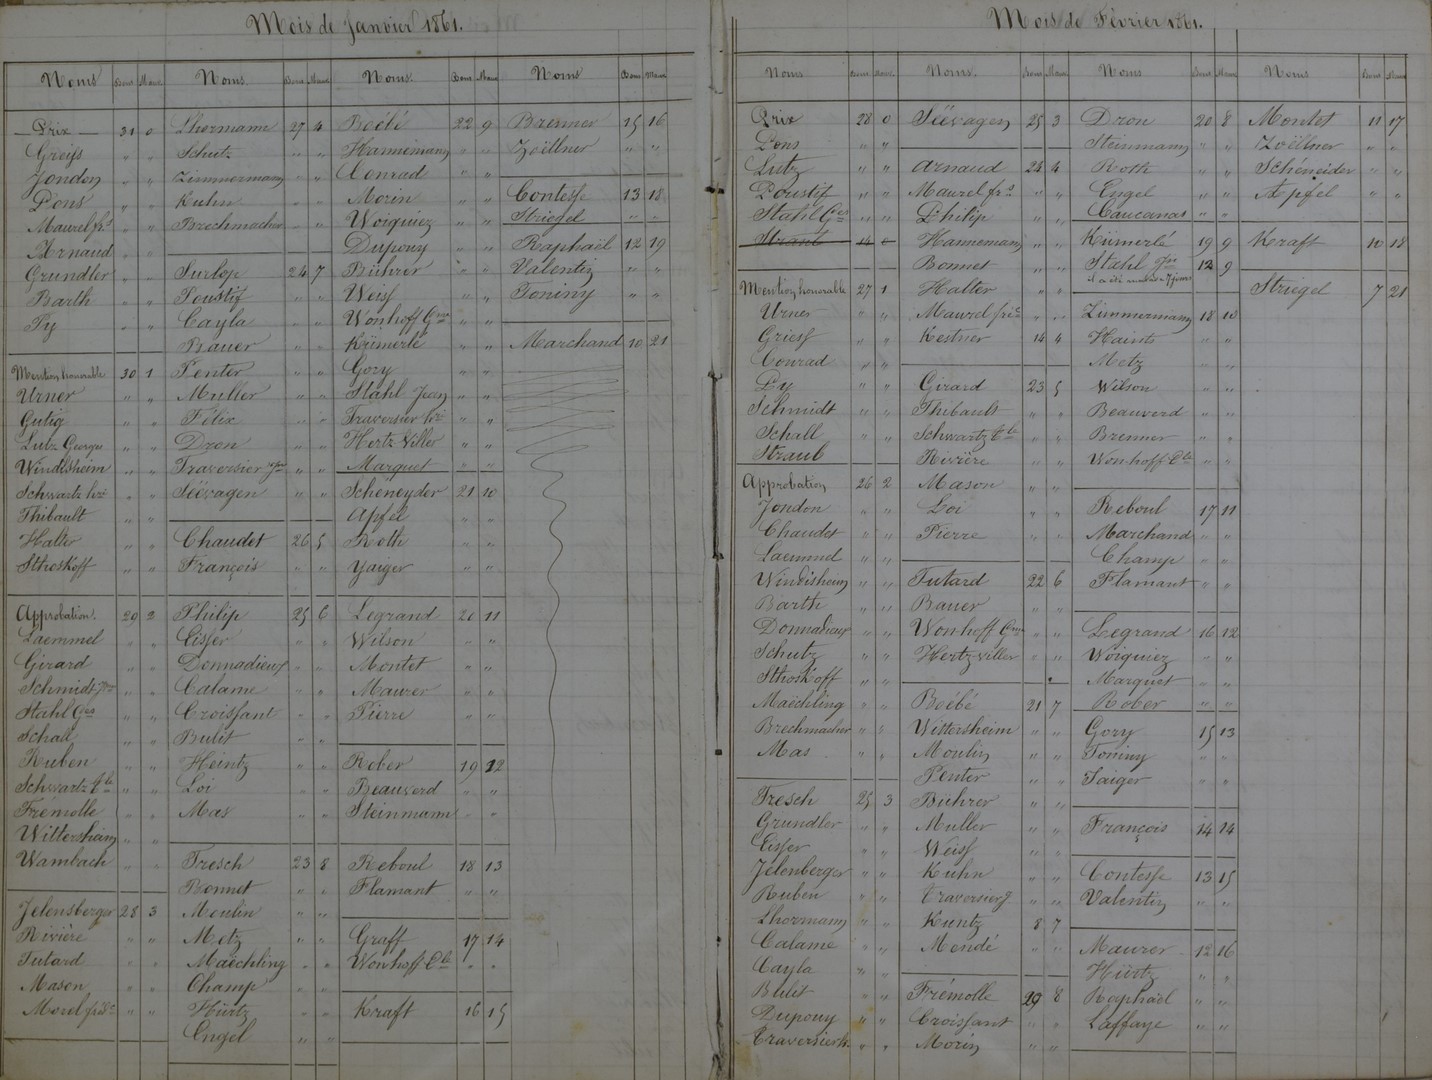 Mois de Janvier 1861.
Noms Bons Mauv.
Prix 31 0
Greiss " "
Jondon " "
Pons " "
Maurel frs " "
Arnaud " "
Grundler " "
Barth " "
Py " "
Mention honorable 30 1
Urner " "
Gutig " "
Lutz Georges " "
Windisheim " "
Schwartz " "
Thibault " "
Halter " "
Sthoskoff " "
Approbation. 29 2
Laemmel " "
Girard " "
Schmidt " "
Stahl Ges " "
Schall " "
Ruben " "
Schwartz " "
Frémolle " "
Wittersheim " "
Wambach " "
Jelensberger 28 3
Rivière " "
Tutard " "
Mason " "
Morel " "
Noms. Bons Mauv
Lhermann 27 4
Schutz " "
Zimmermann " "
Kuhn " "
Brechmacher " "
Surlop 24 7
Poustif " "
Cayla " "
Bauer " "
Penter " "
Muller " "
Félix " "
Dron " "
Traversier " "
Séevagen " "
Chaudet 26 5
François " "
Philip 25 6
Eisser " "
Donnadieux " "
Calame " "
Croissant " "
Bulit " "
Heintz " "
Loi " "
Mas " "
Tresch 23 8
Bonnet " "
Moulin " "
Metz " "
Maëchling " "
Champ " "
Hürtz " "
Engel " "
Noms. Bons Mauv
Boëbé 22 9
Hannemann " "
Conrad " "
Morin " "
Woiguiez " "
Dupouy " "
Bührer " "
Weiss " "
Wonhoff Gme " "
Kümerlé " "
Gory " "
Stahl Jean " "
Traversier " "
Hertz-Viller " "
Marquet " "
Scheneyder 21 10
Apfel " "
Roth " "
Yaiger " "
Legrand 20 11
Wilson " "
Montet " "
Maurer " "
Pierre " "
Rober 19 12
Beauverd " "
Steinmann " "
Reboul 18 13
Flamant " "
Graff 17 14
Wonhoff " "
Kraft 16 15
Noms Bons Mauv
Brenner 15 16
Zoëllner " "
Contesse 13 18
Striegel " "
Raphaël 12 19
Valentin " "
Toniny " "
Marchand 10 21
Mois de Février 1861.
Noms Bons Mauv.
Prix 28 0
Pons " "
Lutz " "
Poustif " "
Stahl Ges " "
Straub 14 0
Mention honorable 27 1
Urner " "
Griess " "
Conrad " "
Py " "
Schmidt " "
Schall " "
Straub " "
Approbation 26 2
Jondon " "
Chaudet " "
Laemmel " "
Windisheim " "
Barth " "
Donnadieux " "
Schutz " "
Sthoskoff " "
Maëchling " "
Brechmacher " "
Mas " "
Tresch 25 3
Grundler " "
Eisser " "
Jelenberger " "
Ruben " "
Lhermann " "
Calame " "
Cayla " "
Bulit " "
Dupouy " "
Traversier " "
Noms. Bons Mauv
Séevagen 25 3
Arnaud 24 4
Maurel frs " "
Philip " "
Hannemann " "
Bonnet " "
Halter " "
Maurel " "
Kestner 14 4
Girard 23 5
Thibault " "
Schwartz " "
Rivière " "
Mason " "
Loi " "
Pierre " "
Tutard 22 6
Bauer " "
Wonhoff Gme " "
Hertz-viller " "
Boëbé 21 7
Wittersheim " "
Moulin " "
Penter " "
Bührer " "
Muller " "
Weiss " "
Kuhn " "
Traversier " "
Kuntz 8 7
Mondé " "
Frémolle 20 8
Croissant " "
Morin " "
Noms Bons Mauv
Dron 20 8
Steinmann " "
Roth " "
Engel " "
Caucanas " "
Kümerlé 19 9
Stahl Jn 12 9
Zimmermann 18 10
Haints " "
Metz " "
Wilson " "
Beauverd " "
Brenner " "
Wonhoff " "
Reboul 17 11
Marchand " "
Champ " "
Flamant " "
Legrand 16 12
Woiguiez " "
Marquet " "
Rober " "
Gory 15 13
Toniny " "
Jaiger " "
François 14 14
Contesse 13 15
Valentin " "
Maurer 12 16
Hürtz " "
Raphaël " "
Laffaye " "
Noms Bons Mauv
Montet 11 17
Zoëllner " "
Schéneider " "
Apfel " "
Kraft 10 18
Striegel 7 21